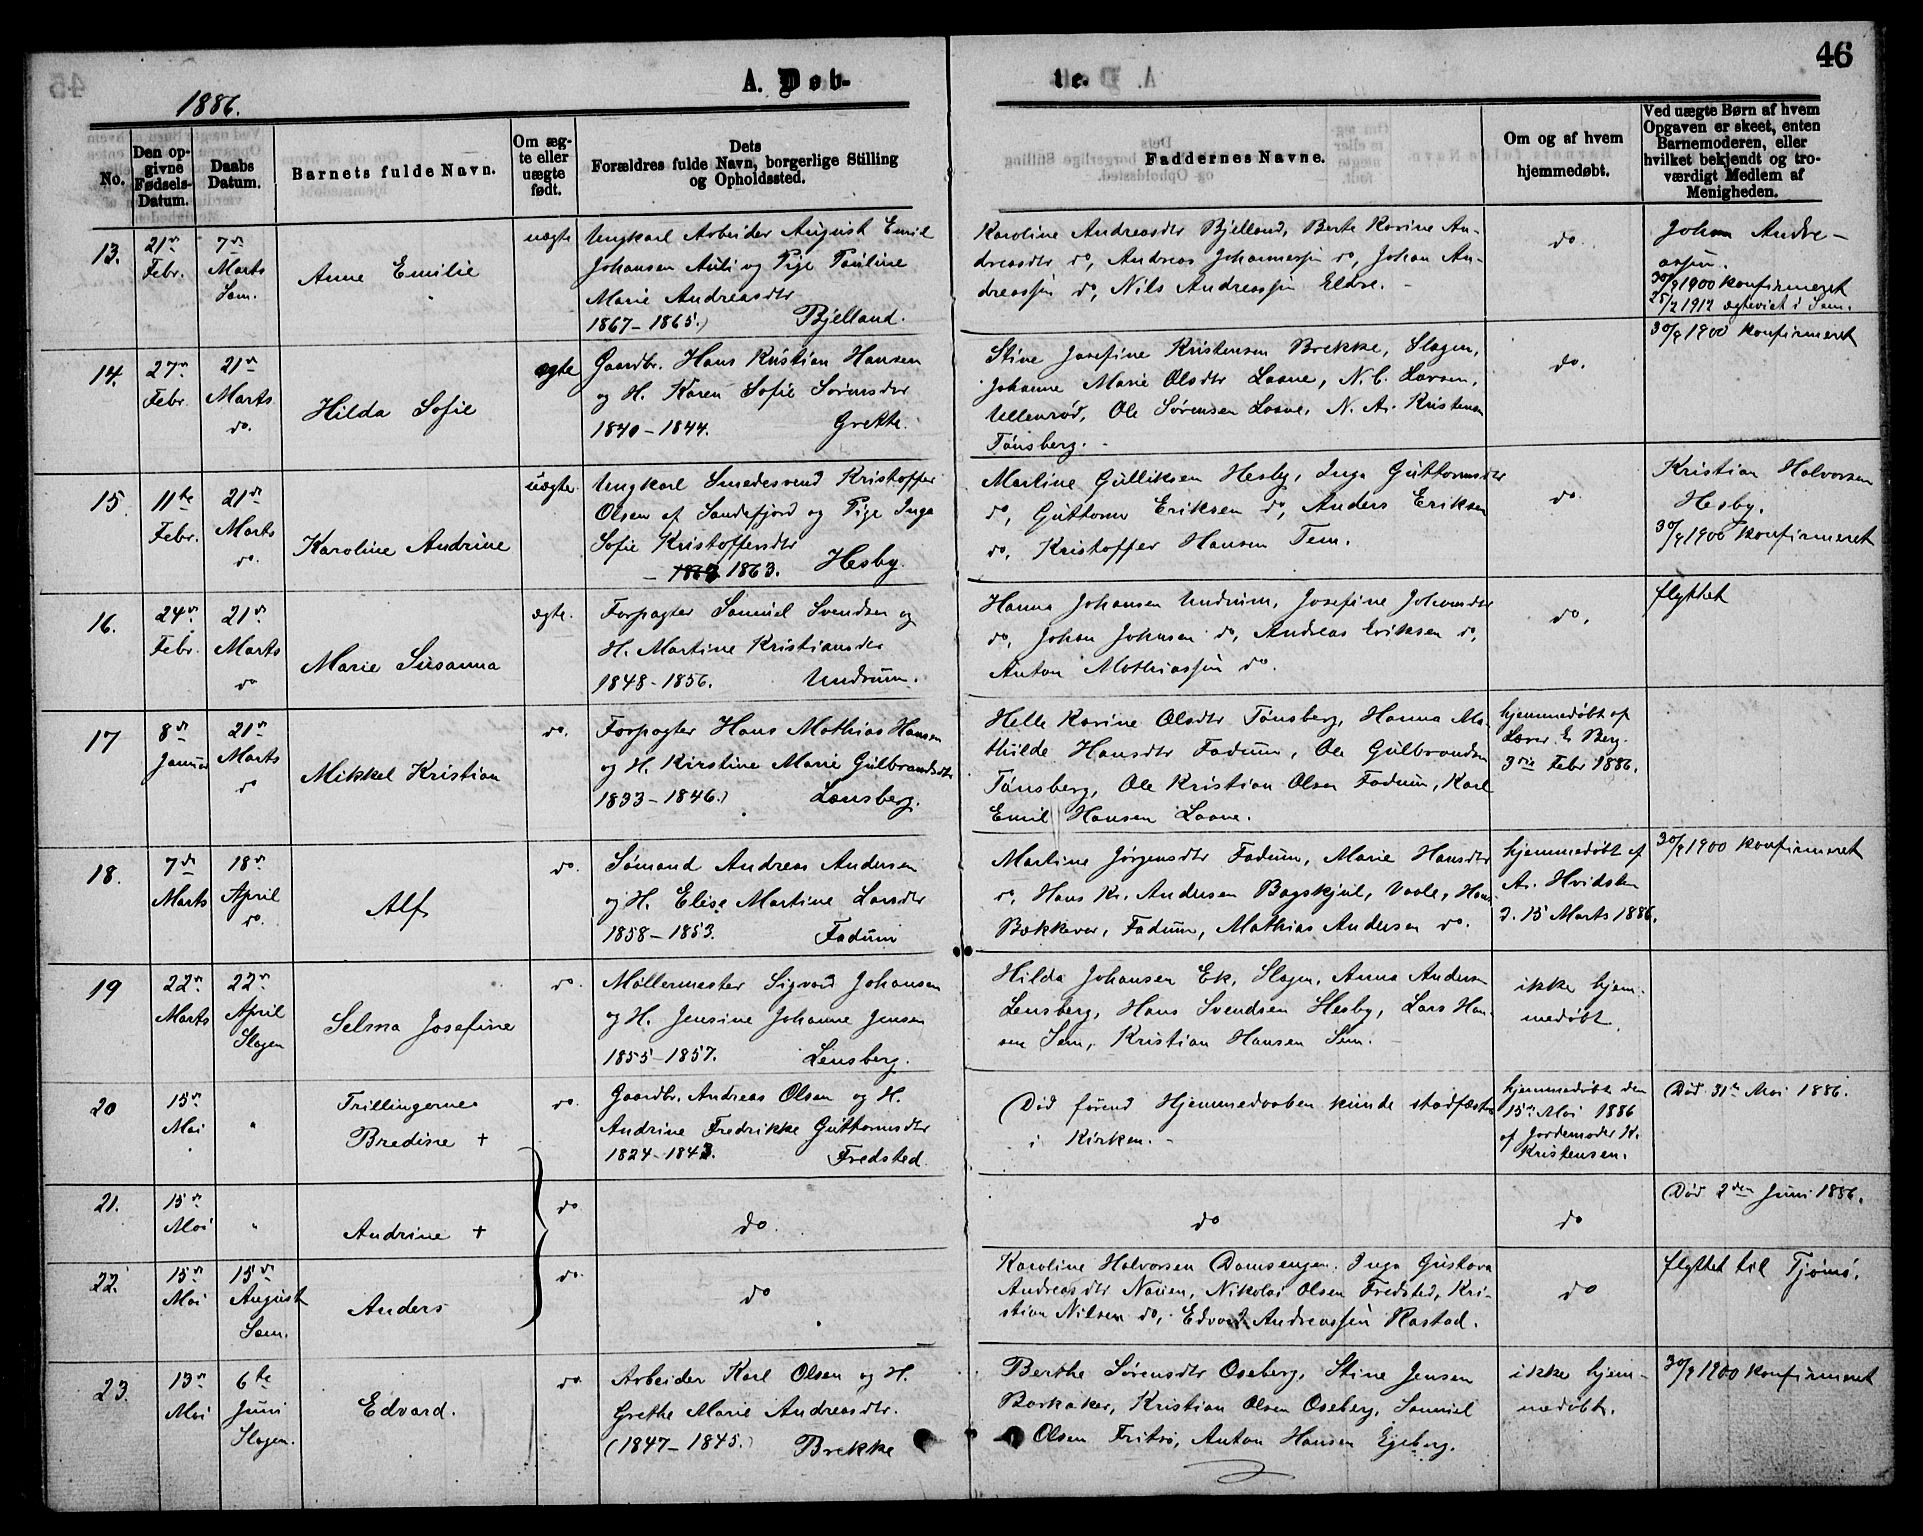 46
1886.
A. Døb-
te.
No.
Den op-
givne
Fødsels-
Datum.
Daabs
Datum.
Barnets fulde Navn.
Om æg-
te eller
uægte
født.
Dets
Forældres fulde Navn, borgerlige Stilling
og Opholdssted.
Faddernes Navne.
Om og af hvem
hjemmedøbt.
Ved uægte Børn af hvem
Opgaven er skeet, enten
Barnemoderen, eller
hvilket bekjendt og tro-
værdigt Medlem af
Menigheden.
13.
21de
Febr.
7de
Marts
Sem.
Anne Emilie
uægte
Ungkarl Arbeider August Emil
Johansen Auli og Pige Pauline
Marie Andreasdtr
1867-1865.) Bjelland.
Karoline Andreasdtr Bjelland, Berte Karine An-
dreasdtr do, Andreas Johannesen do, Johan An-
dreassen do, Nils Andreassen Eldre.
do
Johan Andre-
assen.
30/9 1900 konfirmeret
25/2 1912 ægteviet i Sem.
14.
27de
Febr.
21de
Marts
do.
Hilda Sofie
ægte
Gaardbr. Hans Kristian Hansen
og H. Karen Sofie Sørensdtr
1840-1844. Grette.
Stine Josefine Kristensen Brekke, Slagen,
Johanne Marie Olsdtr Laane, N. C. Larsen,
Ullenrød, Ole Sørensen Laane, N. A. Kristensen
Tønsberg.
do.
30/9 1900 konfirmeret
15.
11te
Febr.
21de
Marts
do.
Karoline Andrine
uægte.
Ungkarl Smedesvend Kristoffer
Olsen af Sandefjord og Pige Inga
Sofie Kristoffersdtr
- 1863. Hesby.
Martine Gulliksen Hesby, Inga Guttormsdtr
do, Guttorm Eriksen do, Anders Eriksen
do, Kristoffer Hansen Tem.
do.
Kristian Halvorsen
Hesby.
30/9 1900 konfirmeret
16.
24de
Febr.
21de
Marts
do
Marie Susanna
ægte.
Forpagter Samuel Svendsen og
H. Martine Kristiansdtr
1848-1856. Undrum.
Hanna Johansen Undrum, Josefine Johansdtr
do, Johan Johnsen do, Andreas Eriksen do,
Anton Mathiassen do.
do.
flyttet
17
8de
Januar
21de
Marts
do
Mikkel Kristian
do.
Forpagter Hans Mathias Hansen
og H. Kirstine Marie Gulbrandsdtr
1833-1846.) Lensberg.
Helle Karine Olsdtr Tønsberg, Hanna Ma-
thilde Hansdtr Fadum, Ole Gulbrandsen
Tønsberg, Ole Kristian Olsen Fadum, Karl
Emil Hansen Laane.
hjemmedøbt af
Lærer E. Berg.
3die Febr 1886.
18.
7de
Marts
18de
April
do.
Alf
do.
Sømand Andreas Andersen
og H. Elise Martine Larsdtr
1858-1853. Fadum
Martine Jørgensdtr Fadum, Marie Hansdtr
do, Hans Kr. Andersen Bagskjul, Vaale, Hans
Bækkevar, Fadum, Mathias Andersen do.
hjemmedøbt af
A. Hvidsten
d. 15 Marts 1886.
30/9 1900 konfirmeret
19
22de
Marts
22de
April
Slagen
Selma Josefine
do.
Møllermester Sigvard Johansen
og H. Jensine Johanne Jensen
1855-1857. Lensberg.
Hilda Johansen Ek, Slagen, Anna Andersen
Lensberg, Hans Svendsen Hesby, Lars Han-
sen Sem, Kristian Hansen Sem.
ikke hjem-
medøbt.
20
15de
Mai
"
Trillingerne
Bredine +
do.
Gaardbr. Andreas Olsen og H.
Andrine Fredrikke Guttormsdtr
1824-1843. Fredsted
Død førend Hjemmedaaben kunde stadfæstes
i Kirken.
hjemmedøbt den
15de Mai 1886
af Jordemoder K.
Kristensen.
Død 31te Mai 1886.
21.
15de
Mai
"
Andrine +
do
do.
do
do
Død 2den Juni 1886.
22.
15de
Mai
15de
August
Sem.
Anders
do.
do
Karoline Halvorsen Damsengen, Inga Gustava
Andreasdtr Nauen, Nikolai Olsen Fredsted, Kri-
stian Nilsen do, Edvard Andreassen Rastad.
do
flyttet til Tjømø.
23.
13de
Mai
6te
Juni
Slagen.
Edvard.
do.
Arbeider Karl Olsen og H.
Grethe Marie Andreasdtr.
(1847-1845.) Brekke
Berthe Sørensdtr Oseberg, Stine Jensen
Barkaker, Kristian Olsen Oseberg, Samuel
Olsen Fritsø, Anton Hansen Egeberg.
ikke hjem-
medøbt.
30/9 1900 konfirmeret